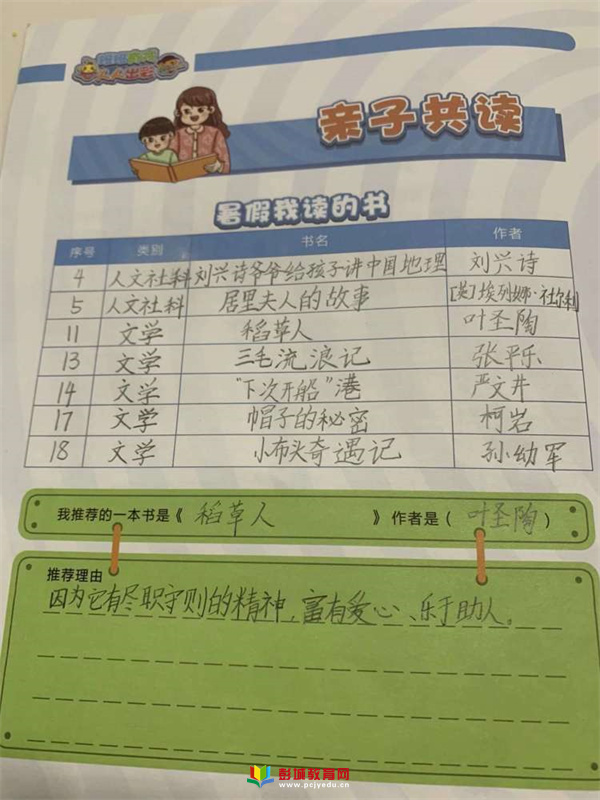 亲子共读
暑假我读的书
序号 类别 书名 作者
4 人文社科 刘兴诗爷爷给孩子讲中国地理 刘兴诗
5 人文社科 居里夫人的故事 [英]埃列娜·杜尔利
11 文学 稻草人 叶圣陶
13 文学 三毛流浪记 张平乐
14 文学 “下次开船”港 严文井
17 文学 帽子的秘密 柯岩
18 文学 小布头奇遇记 孙幼军
我推荐的一本书是《 稻草人 》作者是( 叶圣陶 )
推荐理由
因为它有尽职守则的精神,富有爱心、乐于助人。
彭城教育网
www.pcjyedu.cn